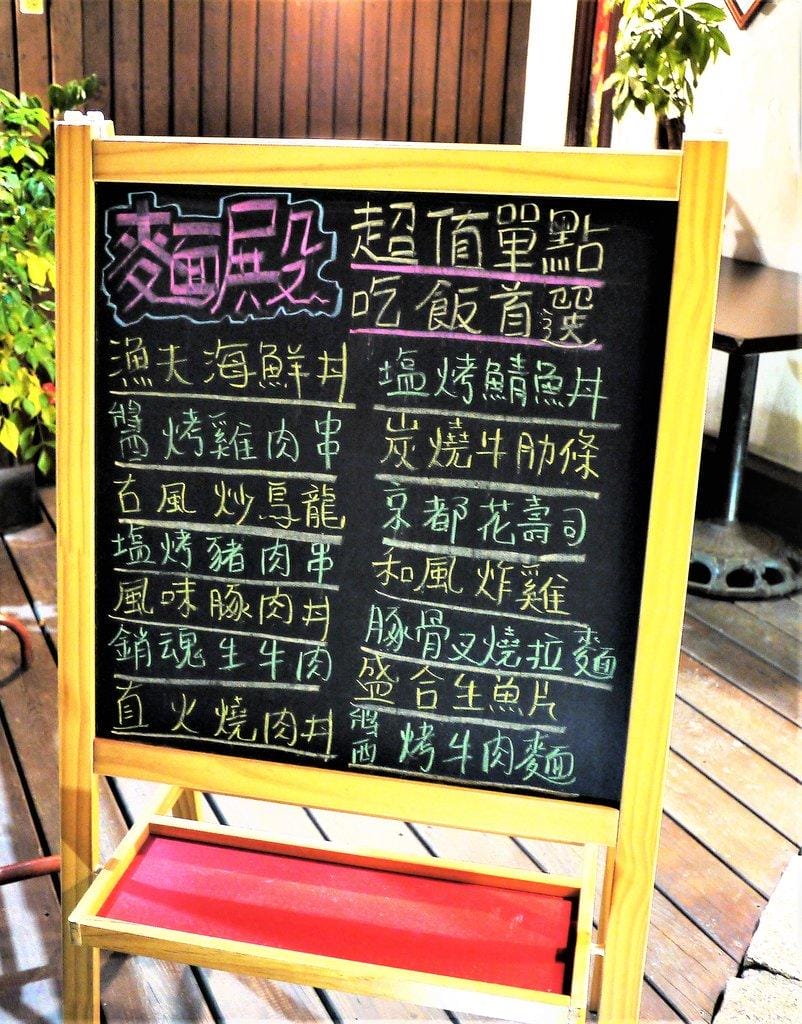 麵殿
超值單點
吃飯首選
漁夫海鮮丼
醬烤雞肉串
古風炒烏龍
塩烤豬肉串
風味豚肉丼
銷魂生牛肉
直火燒肉丼
塩烤鯖魚丼
炭燒牛肋條
京都花壽司
和風炸雞
豚骨叉燒拉麵
盛合生魚片
醬烤牛肉麵